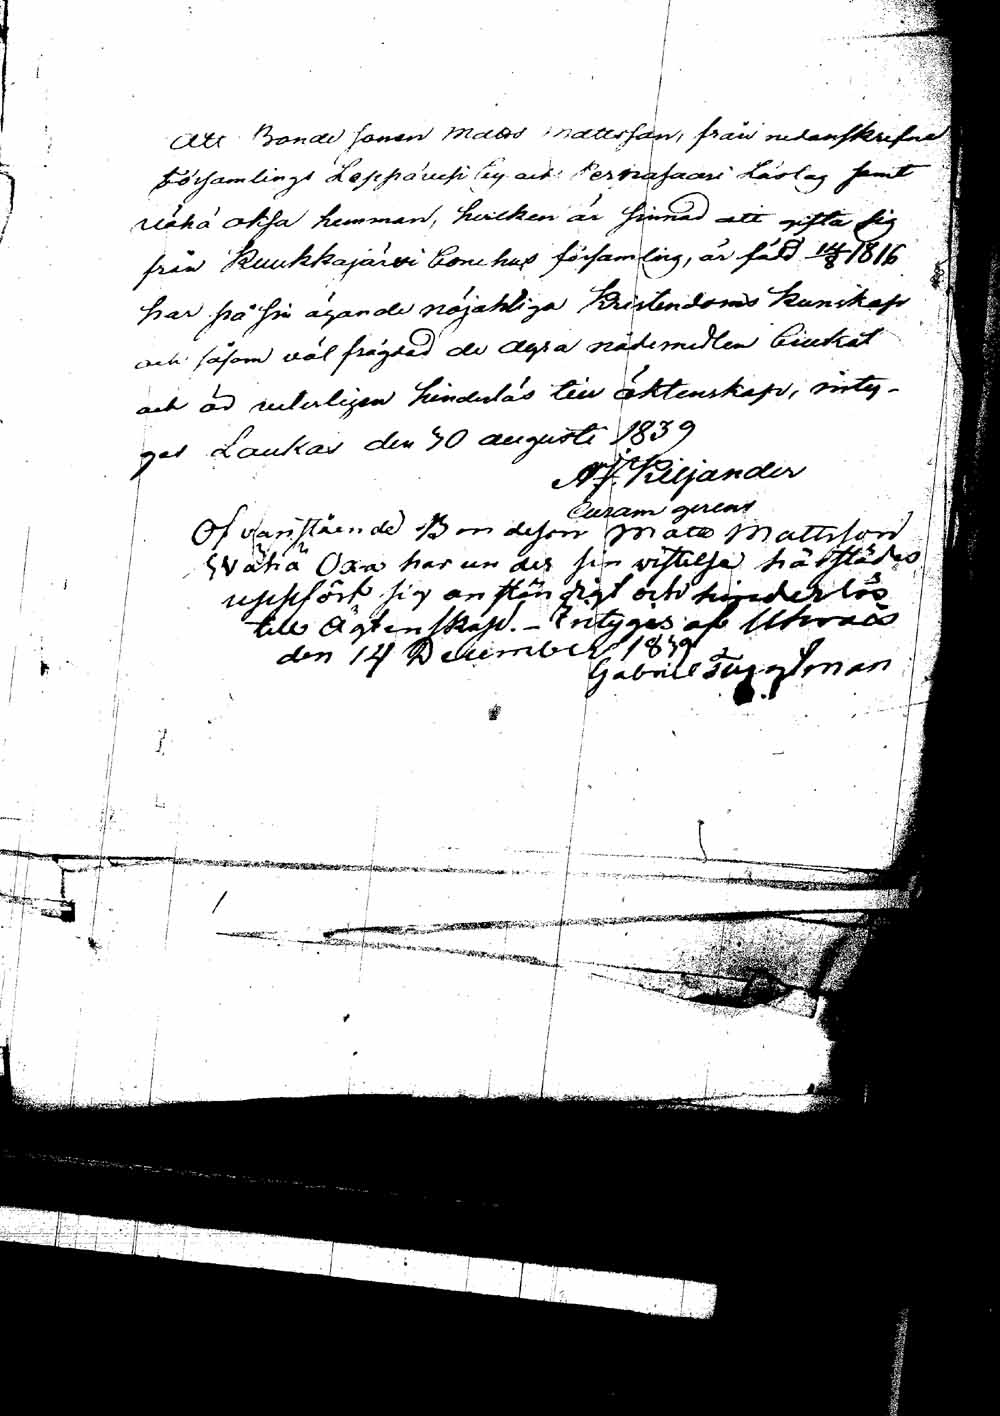 Att Bonde sonen Mats Mattsson, från nedanskrefne
församlings Leppävesi by och Pernasaari Låslag samt
Wähä oksa hemman, hvilken är sinnad att gifta sig
från Kuukkajärvi församling, är född 14/8 1816
har på sin ägande nöjaktiga Kristendoms Kunskap
och såsom väl frägdad de dyra nådemedlen brukat
och är veterligen hinderlös till äktenskap, intyg-
gas Laukas den 30 augusti 1839
A. J. Kiljander
Curam gerens
Ofvanstående Bondeson Mats Mattsson
Wähä Oxa har under sin vistelse härstädes
uppfört sig anständigt och hinderlös
till Ägtenskap. – Intygas af
den 14 December 1839
Gabriel